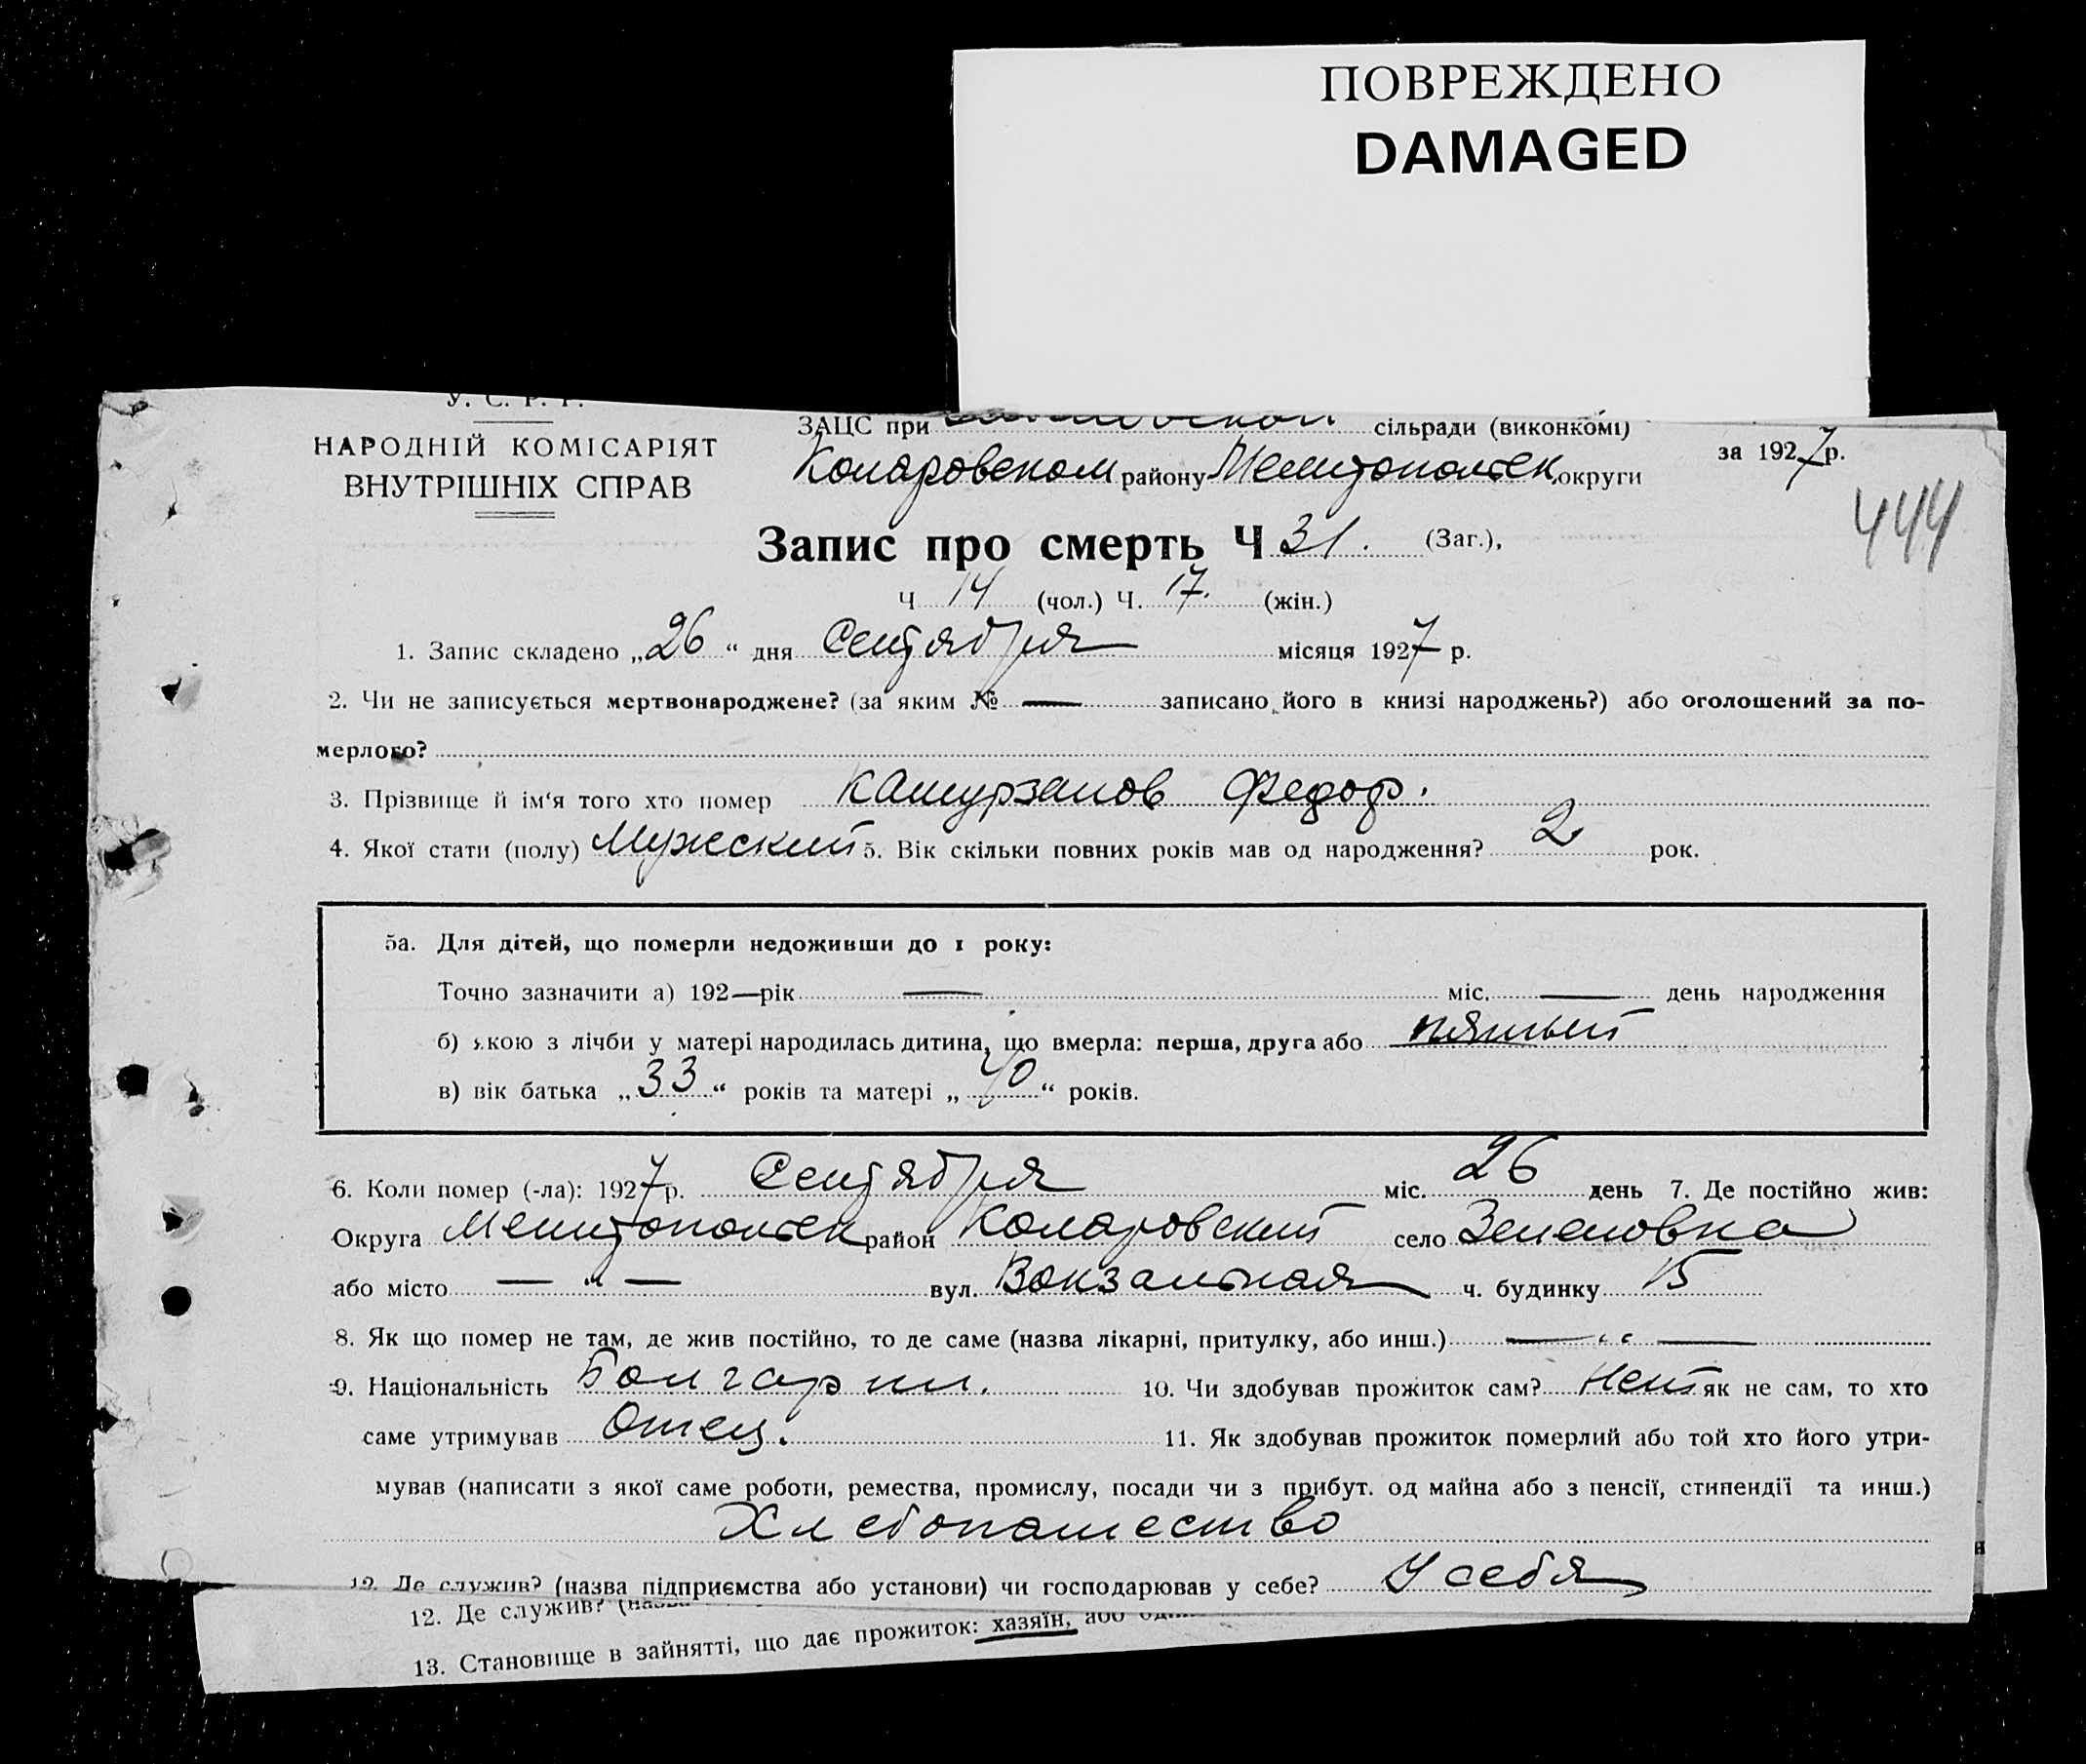 ПОВРЕЖДЕНО
DAMAGED
У. С. Р. Р.
НАРОДНІЙ КОМІСАРІЯТ
ВНУТРІШНІХ СПРАВ
ЗАЦС при сільради (виконкомі)
Коларовском району Мелитопольск округи
за 1927 р.
444
Запис про смерть Ч 31. (Заг.),
Ч 14 (чол.) Ч. 17. (жін.)
1. Запис складено „26“ дня Сентября місяця 1927 р.
2. Чи не записується мертвонароджене? (за яким № — записано його в книзі народжень?) або оголошений за по-
мерлого?
3. Прізвище й ім‘я того хто помер Федор.
4. Якої стати (полу) Мужеский 5. Вік скільки повних років мав од народження? 2 рок.
5а. Для дітей, що померли недоживши до 1 року:
Точно зазначити а) 192—рік — міс. — день народження
б) якою з лічби у матері народилась дитина, що вмерла: перша, друга або пятый
в) вік батька „33“ років та матері „40“ років.
6. Коли помер (-ла): 1927 р. Сентября міс. 26 день 7. Де постійно жив:
Округа Мелитопольск район Коларовский село Зеленовка
або місто — „ — вул. Вокзальная ч. будинку 15
8. Як що помер не там, де жив постійно, то де саме (назва лікарні, притулку, або инш.) — „ —
9. Національність Болгарин. 10. Чи здобував прожиток сам? Нет як не сам, то хто
саме утримував Отец. 11. Як здобував прожиток померлий або той хто його утри-
мував (написати з якої саме роботи, ремества, промислу, посади чи з прибут. од майна або з пенсії, стипендії та инш.)
Хлебопашество
12. Де служив? (назва підприємства або установи) чи господарював у себе? У себя
12. Де служив? (назва
13. Становище в зайнятті, що дає прожиток: хазяїн, або